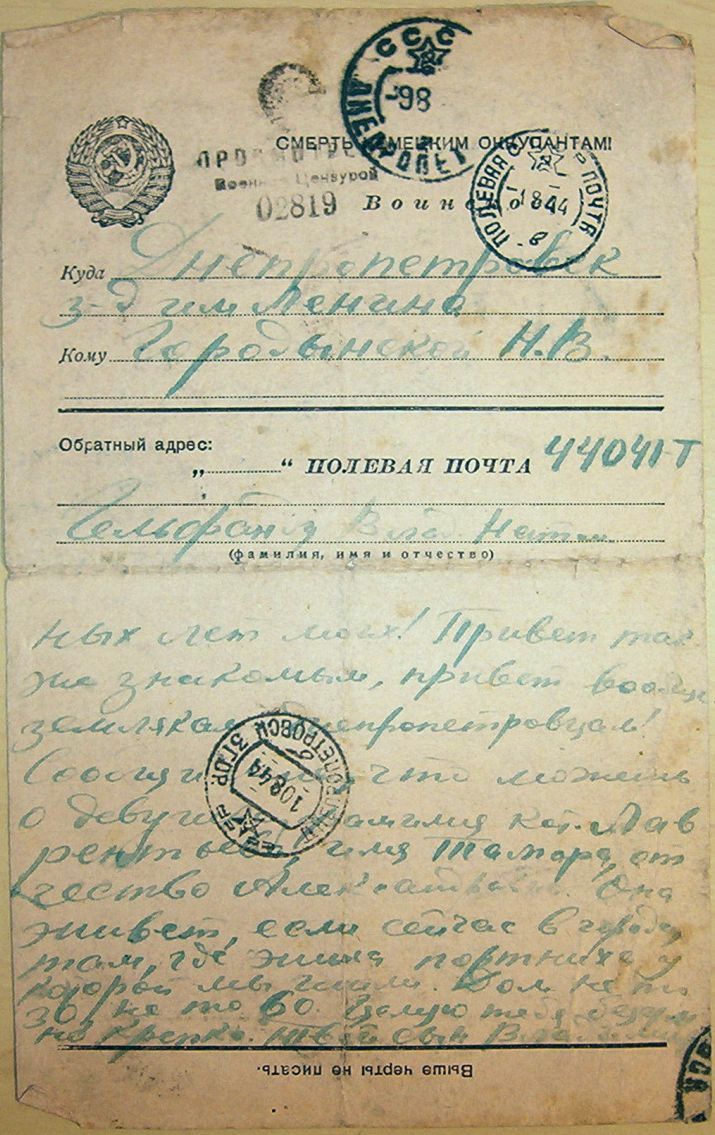 СССР
-98
ДНЕПРОПЕТ
СМЕРТЬ НЕМЕЦКИМ ОККУПАНТАМ!
ПРОСМОТРЕНО
Военной Цензурой
02819
Воинское
ПОЛЕВАЯ ПОЧТА
1 8 44
Куда Днепропетровск
з-д им Ленина
Кому Городынской Н.В.
Обратный адрес:
„ “ ПОЛЕВАЯ ПОЧТА 44041-Т
Гельфанд Влад Натан
(фамилия, имя и отчество)
ных лет моих! Привет так
же знакомым, привет вообще
землякам Днепропетровцам!
Сообщи что можешь
о девушке фамилия кот. Лав
рентьева, имя Тамара, от
чество Она
живет, если сейчас в городе,
там, где жила портниха у
которой мы шили. Дом не то
30, не то 60. Целую тебя безум
но крепко. твой сын
10844
Выше черты не писать.